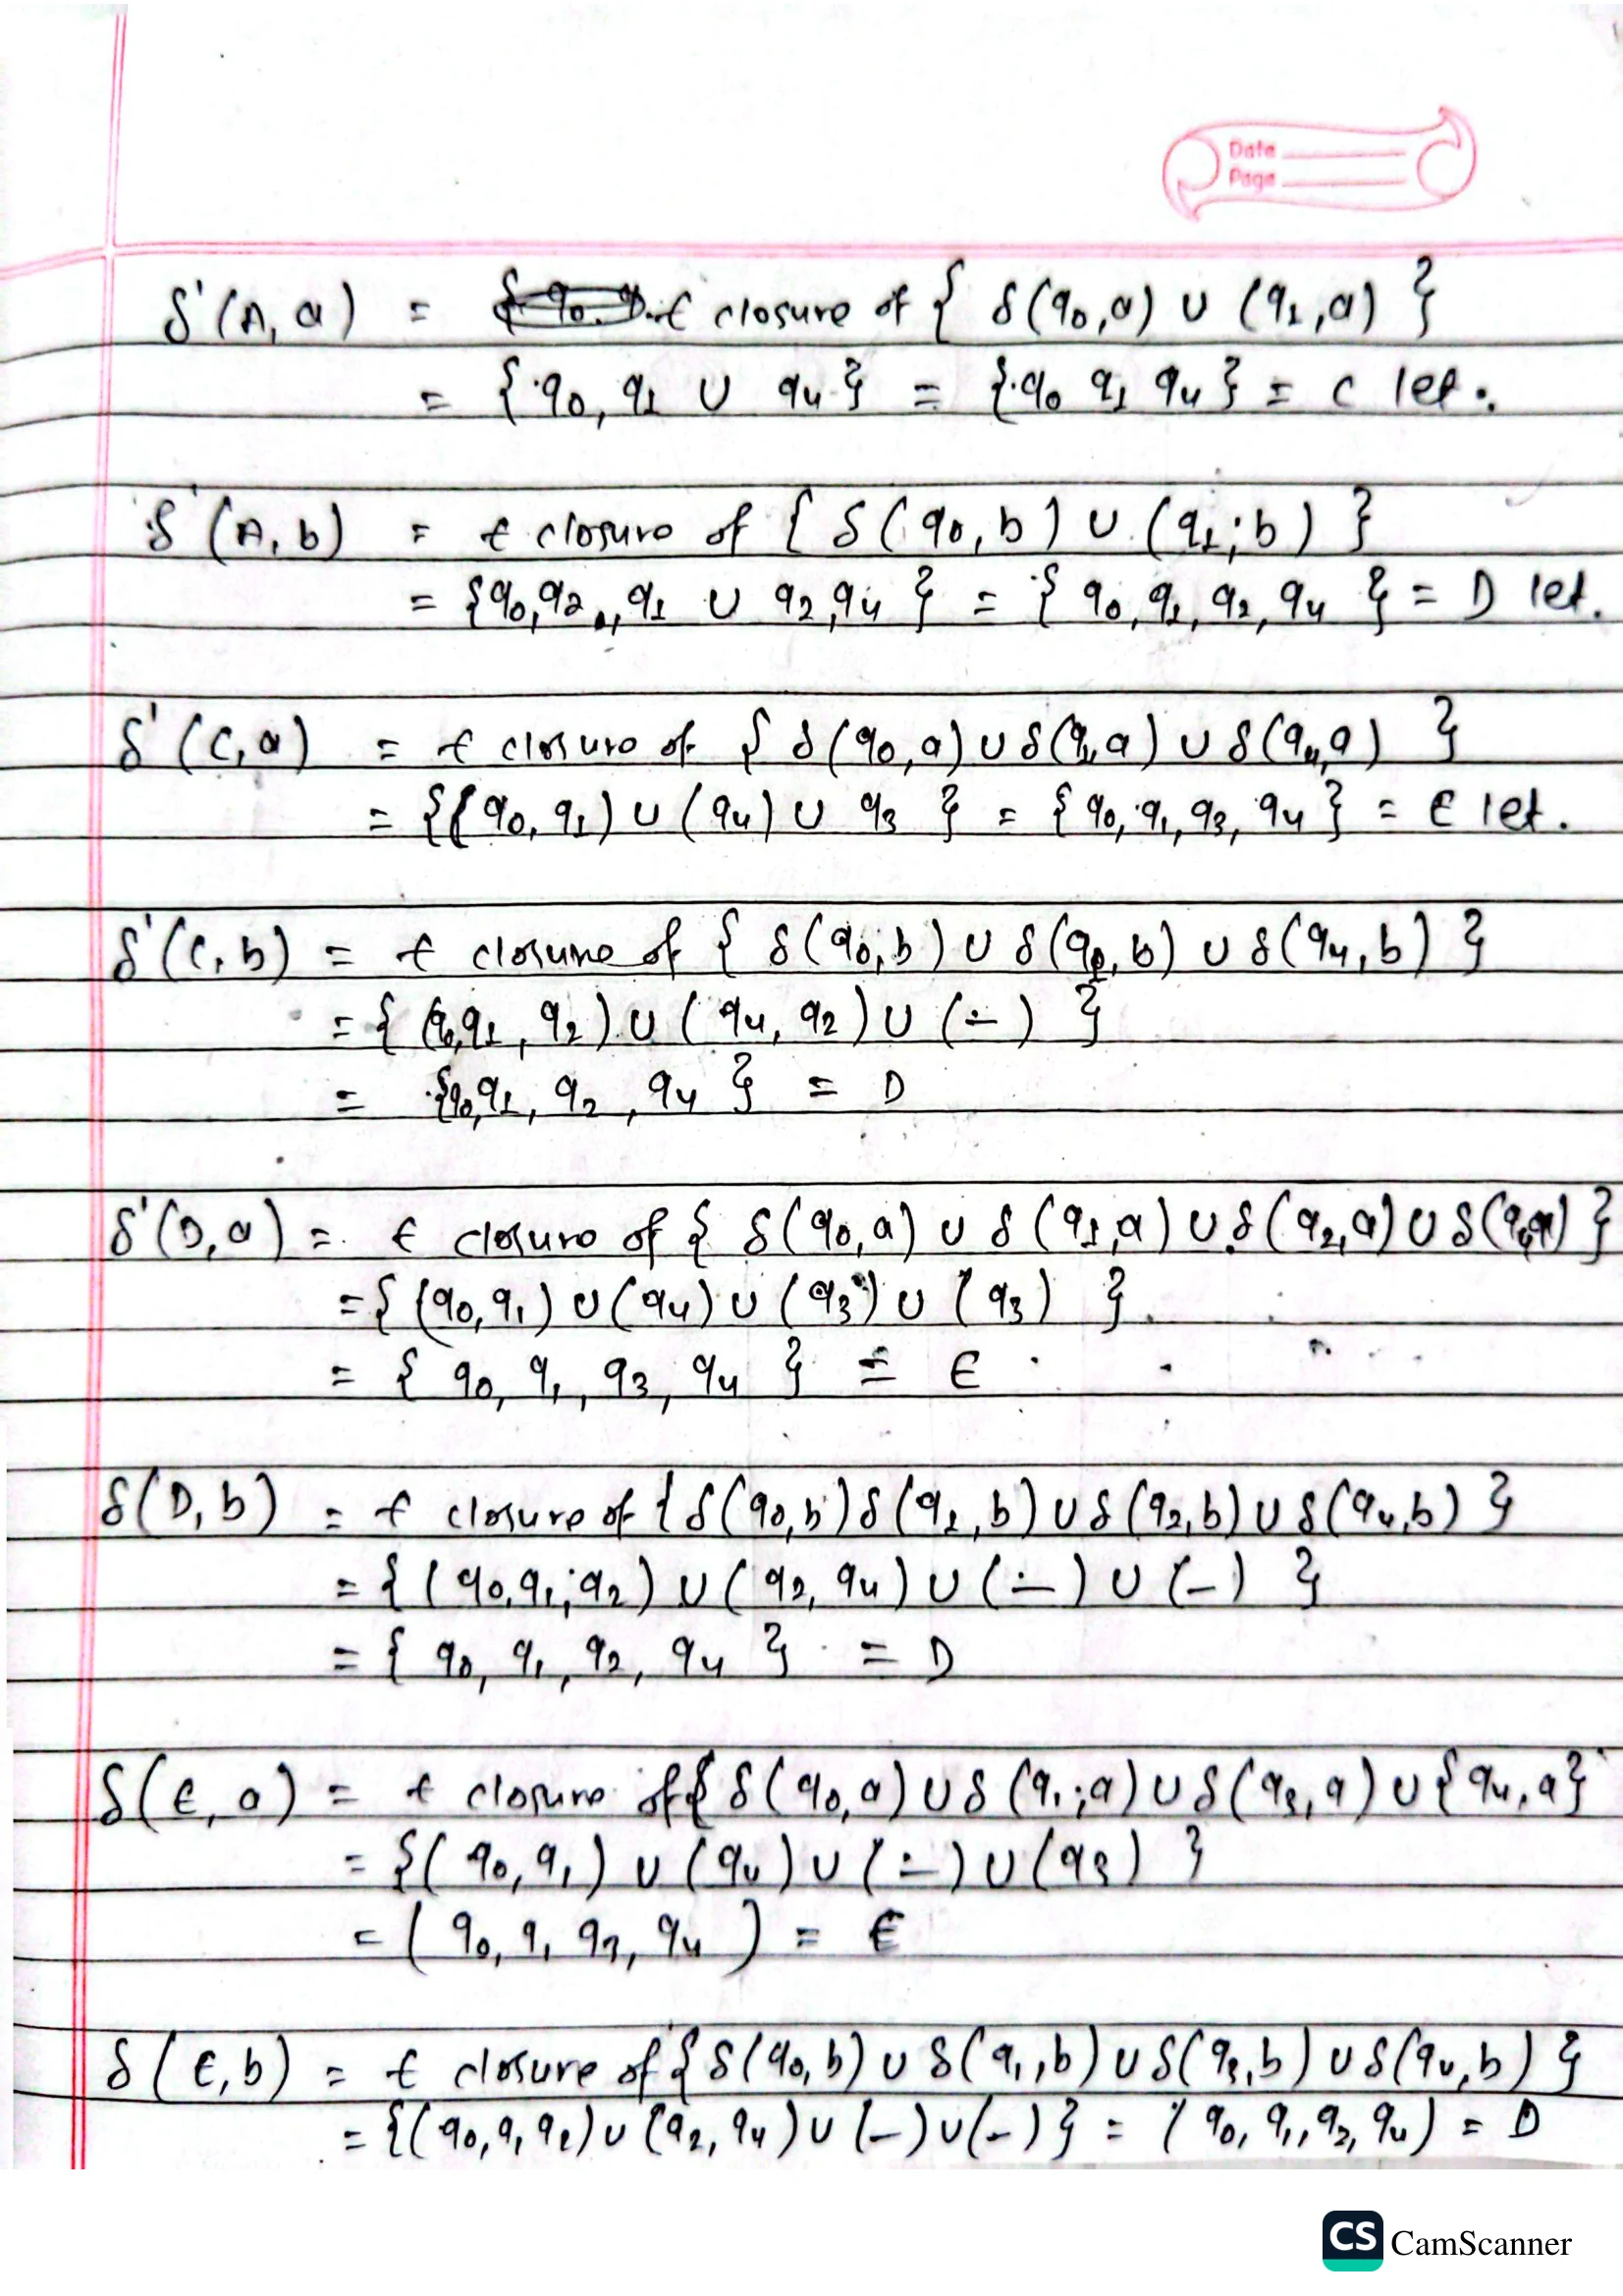 Date
Page
δ'(A, a) = ε closure of { δ(q0,a) ∪ (q1,a) }
= { q0, q1 ∪ q4 } = { q0 q1 q4 } = C let.
δ'(A, b) = ε closure of { δ(q0, b) ∪ (q1, b) }
= {q0,q2,,q1 ∪ q2,q4 } = { q0, q1, q2, q4 } = D let.
δ'(C, a) = ε closure of { δ(q0,a) ∪ δ(q1,a) ∪ δ(q4,a) }
= {(q0, q1) ∪ (q4) ∪ q3 } = { q0, q1, q3, q4 } = E let.
δ'(C, b) = ε closure of { δ(q0,b) ∪ δ(q1, b) ∪ δ(q4, b) }
= { (q0,q1, q2) ∪ (q4, q2) ∪ (–) }
= {q0,q1, q2, q4 } = D
δ'(D, a) = ε closure of { δ(q0,a) ∪ δ(q1,a) ∪ δ(q2,a) ∪ δ(q4,a) }
= { (q0,q1) ∪ (q4) ∪ (q3) ∪ (q3) }
= { q0, q1, q3, q4 } = E
δ(D, b) = ε closure of { δ(q0,b) δ(q1, b) ∪ δ(q2,b) ∪ δ(q4,b) }
= { (q0,q1,q2) ∪ (q2, q4) ∪ (–) ∪ (–) }
= { q0, q1, q2, q4 } = D
δ(E, a) = ε closure of { δ(q0,a) ∪ δ(q1,a) ∪ δ(q3,a) ∪ {q4,a}
= {( q0,q1) ∪ (q4) ∪ (–) ∪ (q3) }
= ( q0, q1 q3, q4 ) = E
δ(E, b) = ε closure of { δ(q0,b) ∪ δ(q1,b) ∪ δ(q3,b) ∪ δ(q4,b) }
= {(q0,q1 q2) ∪ (q2, q4) ∪ (–) ∪ (–)} = ( q0, q1, q2, q4) = D
CS CamScanner